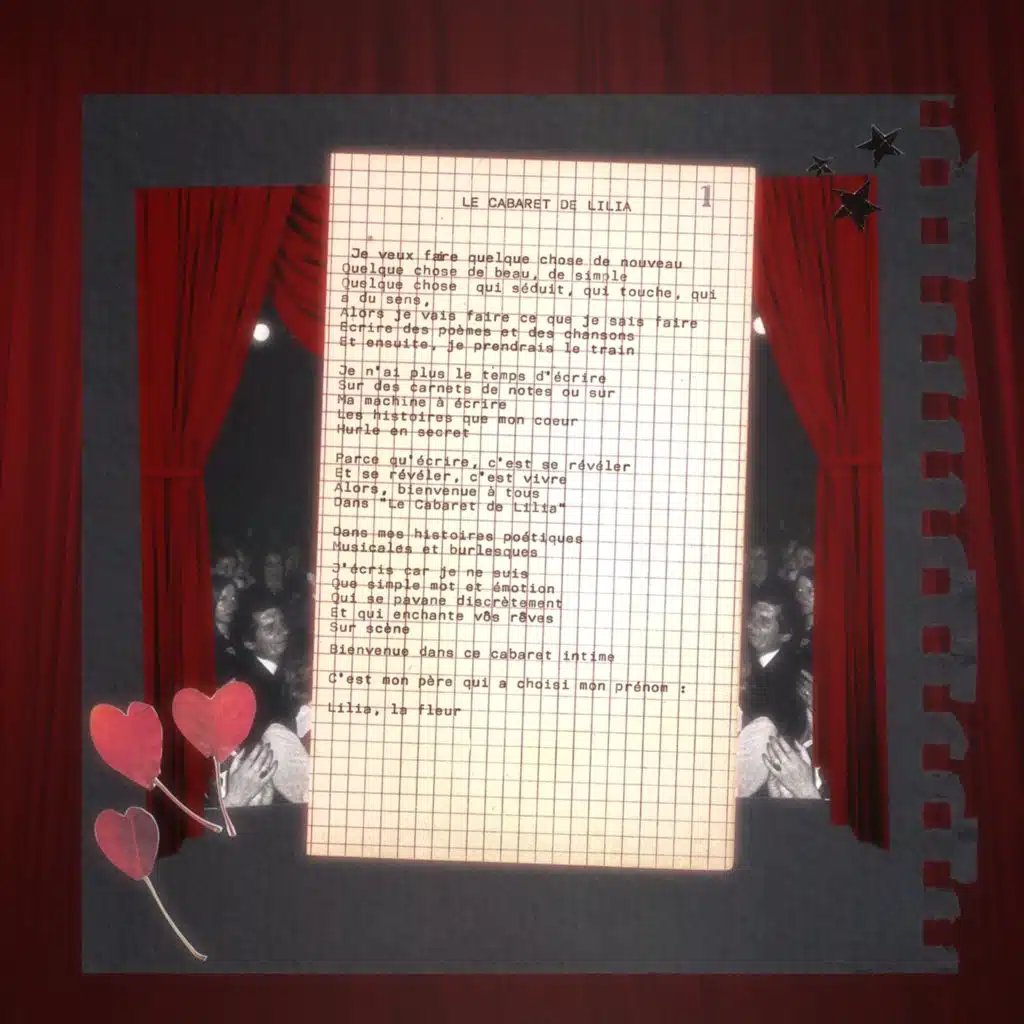 1
LE CABARET DE LILIA
Je veux faire quelque chose de nouveau
Quelque chose de beau, de simple
Quelque chose qui séduit, qui touche, qui
a du sens,
Alors je vais faire ce que je sais faire
Ecrire des poèmes et des chansons
Et ensuite, je prendrais le train
Je n'ai plus le temps d'écrire
Sur des carnets de notes ou sur
Ma machine à écrire
Les histoires que mon coeur
Hurle en secret
Parce qu'écrire, c'est se révéler
Et se révéler, c'est vivre
Alors, bienvenue à tous
Dans "Le Cabaret de Lilia"
Dans mes histoires poétiques
Musicales et burlesques
J'écris car je ne suis
Que simple mot et émotion
Qui se pavane discrètement
Et qui enchante vos rêves
Sur scène
Bienvenue dans ce cabaret intime
C'est mon père qui a choisi mon prénom :
Lilia, la fleur